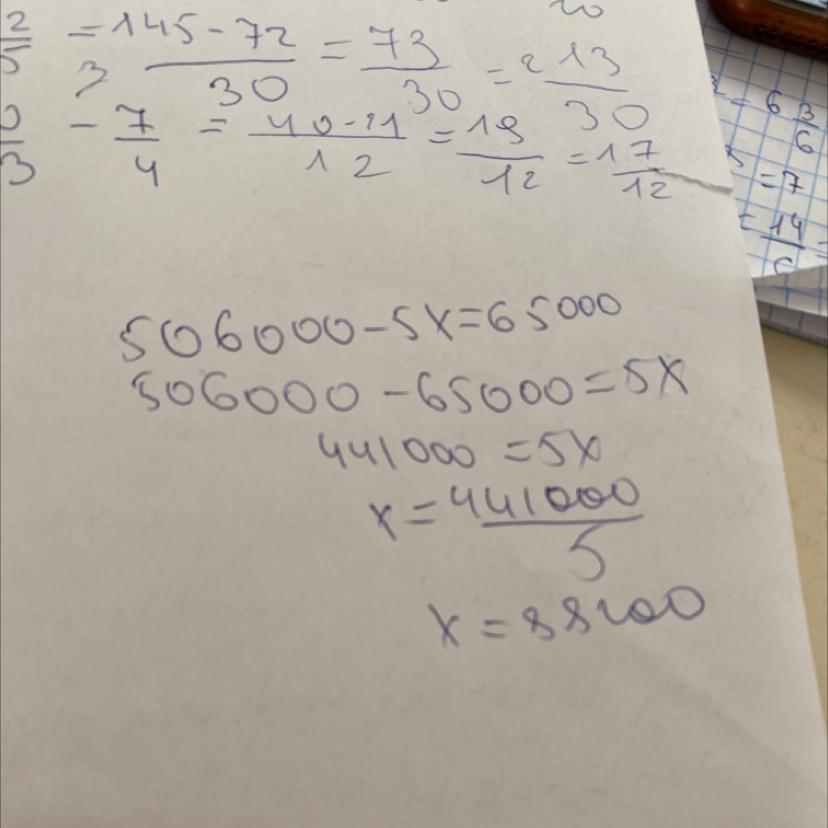 2/5 = 145-72/30 = 73/30 = 2 13/30
0/3 - 7/4 = 40-21/12 = 19/12 = 1 7/12
506000-5x=65000
506000-65000=5x
441000=5x
x=441000/5
x=88200
= 6 3/6
=7
=14/